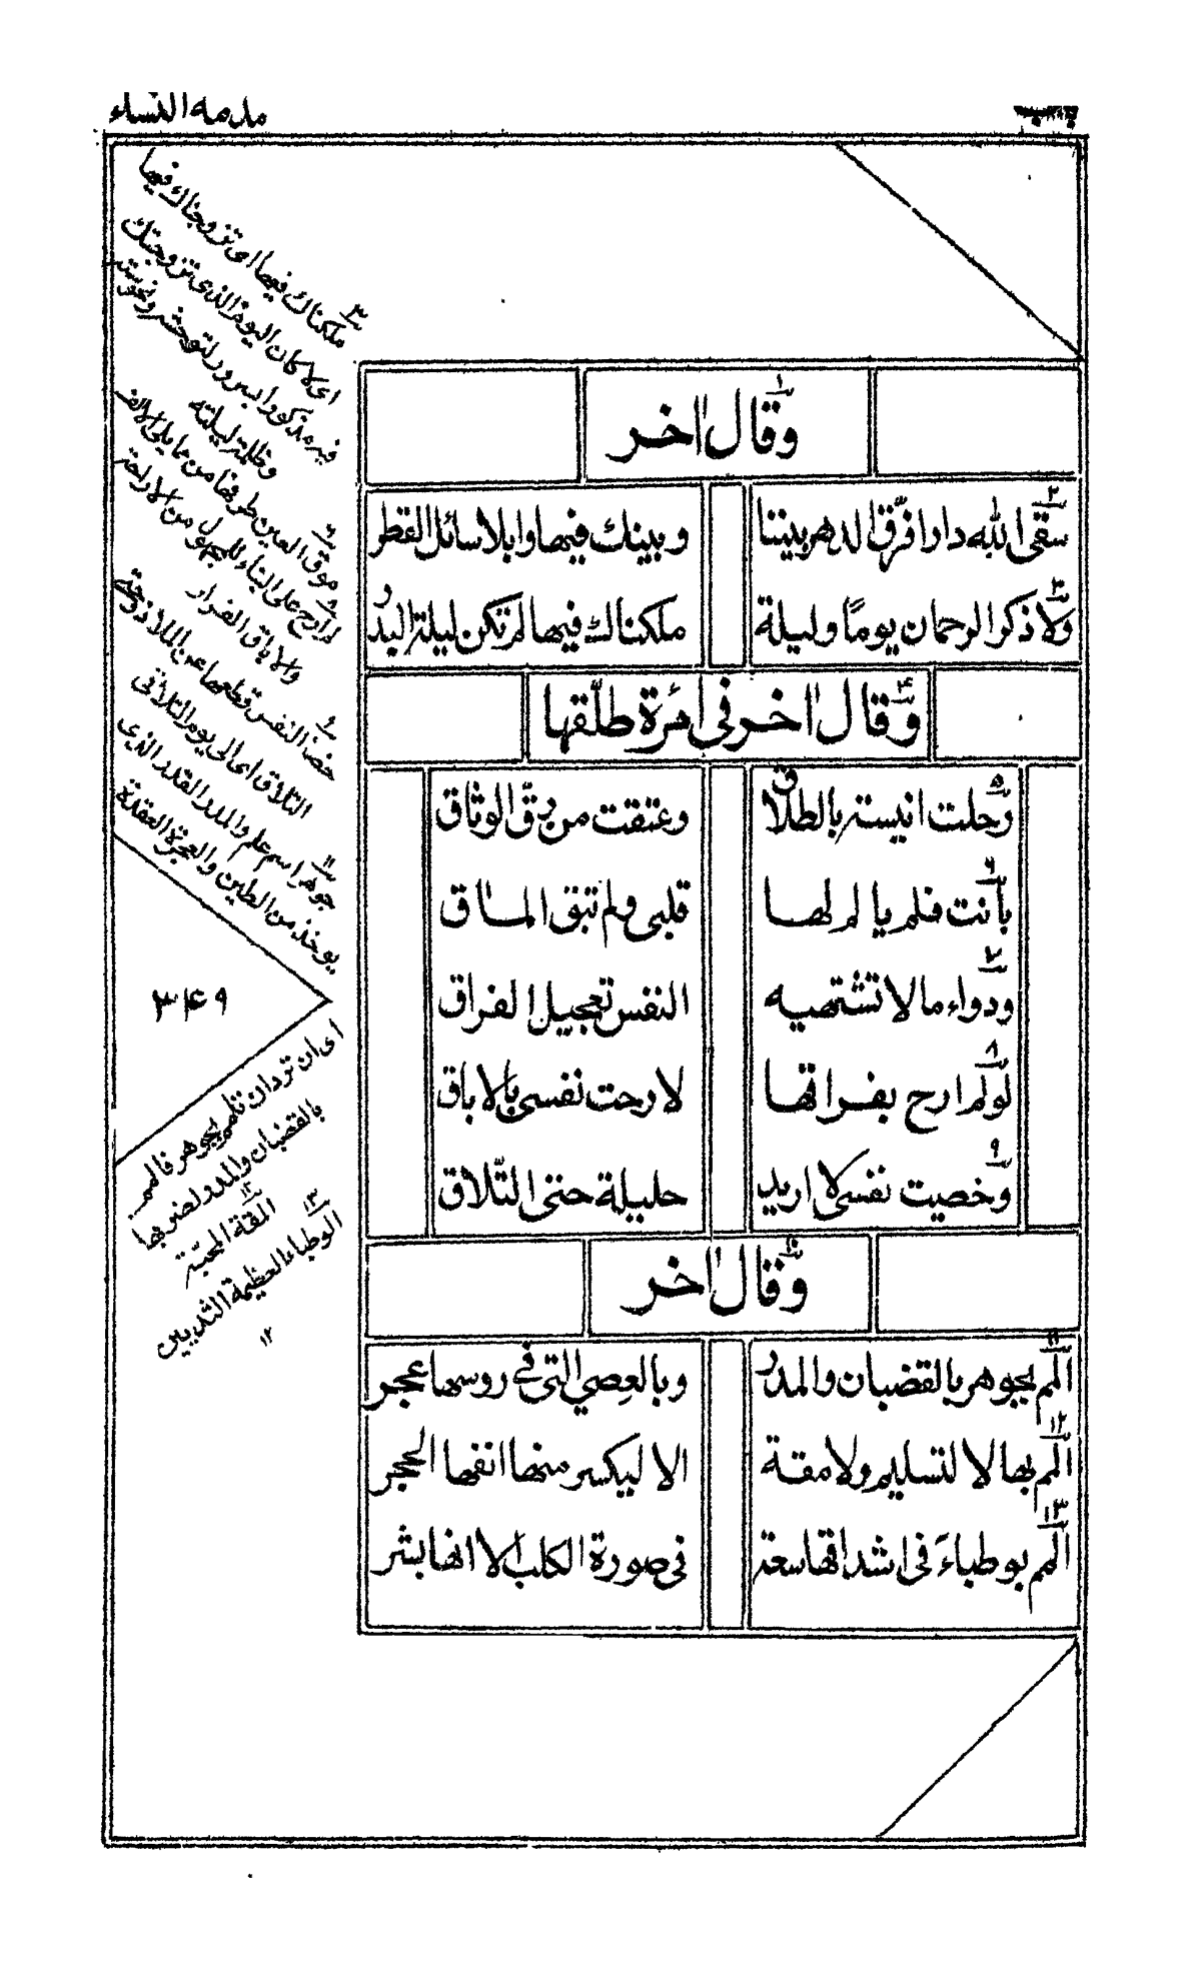 باب
مذمة النساء
١ وقال اخر
٢ سقى الله دارا فرّق الدهر بيننا وبينك فيها وابلا سائل القطر
٣ ولا ذكر الرحمان يومًا وليلة ملكناك فيها لم تكن ليلة البدر
٤ وقال اخر فى امرة طلّقها
٥ رحلت انيسة بالطلاق وعتقت من رقّ الوثاق
٦ بانت فلم يالم لها قلبى ولم تبق الماق
٧ ودواء ما لا تشتهيه النفس تعجيل الفراق
٨ لو لم ارح بفراقها لارحت نفسى بالاباق
٩ وخصيت نفسى لا اريد حليلة حتى التّلاق
١٠ وقال اخر
١١ المم بجوهر بالقضبان والمدر وبالعصي التى فى روسها عجر
١٢ المم بها لا لتسليم ولا مقة الا ليكسر منها انفها الحجر
١٣ المم بوطباءَ فى اشداقها سعة فى صورة الكلب الا انها بشر
٣ ملكناك فيها اى تزوجناك فيها
اى لا كان اليوم الذى تزوجتك
فيه مذكورا
وظلمة ليلته
٦ موق العين طرفها من ما يلى الانف
٨ لم ارح على البناء للمجهول من الاراحة
والاباق الفرار
٩ خصا النفس قطعها عن اللاذوجتى
التلاق اى الى يوم التلاقى
١١ جوهر اسم علم والمدر القدر الذى
يوخذ من الطين والعجرة العقدة
٣٤٩
اى ان ترد ان تلم بجوهر فالمم
بالقضبان والمدر لضربها
١٢ المقة المحبّة
١٣ الوطباء العظيمة الثديين
١٢